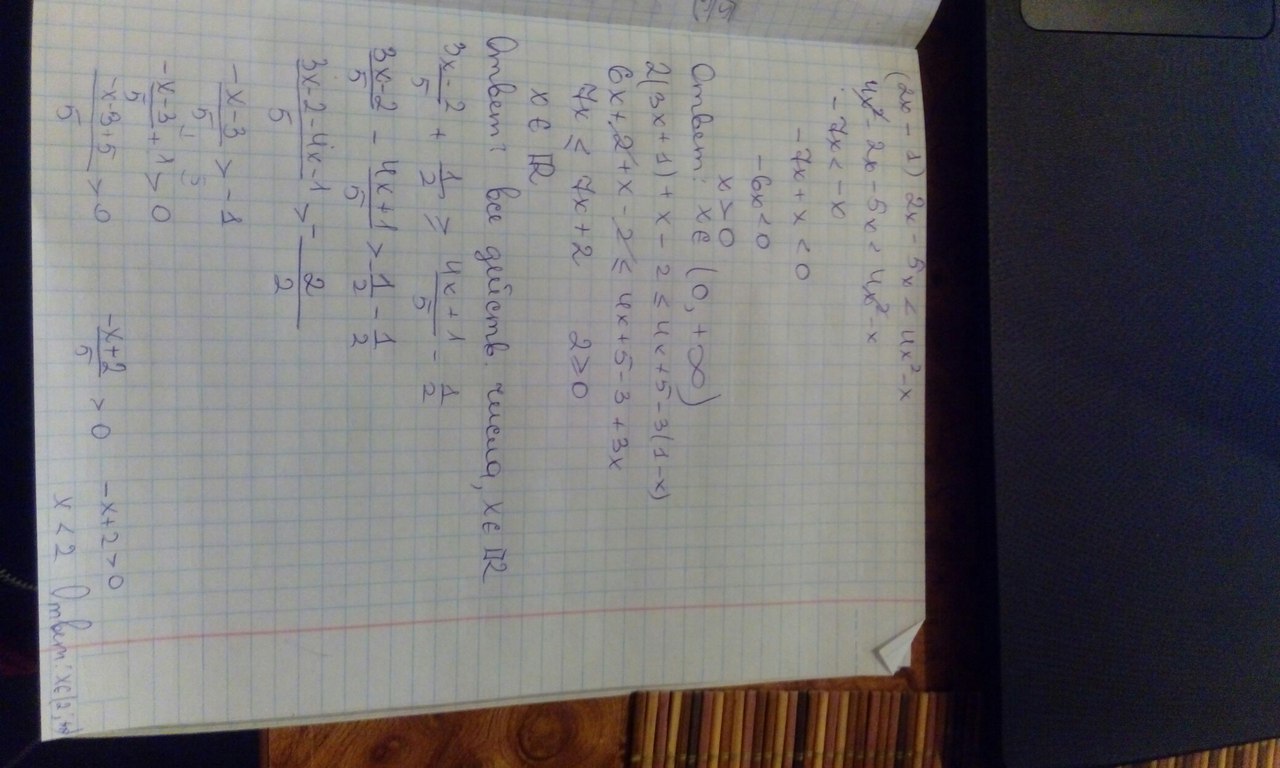 (2x - 1) 2x - 5x < 4x² - x
4x² - 2x - 5x < 4x² - x
- 7x < - x
- 7x + x < 0
- 6x < 0
x > 0
Ответ: x ∈ (0, +∞)
2(3x + 1) + x - 2 ≤ 4x + 5 - 3(1 - x)
6x + 2 + x - 2 ≤ 4x + 5 - 3 + 3x
7x ≤ 7x + 2 2 ≥ 0
x ∈ ℝ
Ответ: все действ. числа, x ∈ ℝ
3x - 2/5 + 1/2 ≥ 4x + 1/5 - 1/2
3x - 2/5 - 4x + 1/5 > - 1/2 - 1/2
3x - 2 - 4x - 1/5 > - 2/2
-x - 3/5 > - 1
-x - 3/5 + 1 > 0
-x - 3 + 5/5 > 0
-x + 2/5 > 0 -x + 2 > 0
x < 2 Ответ: x ∈